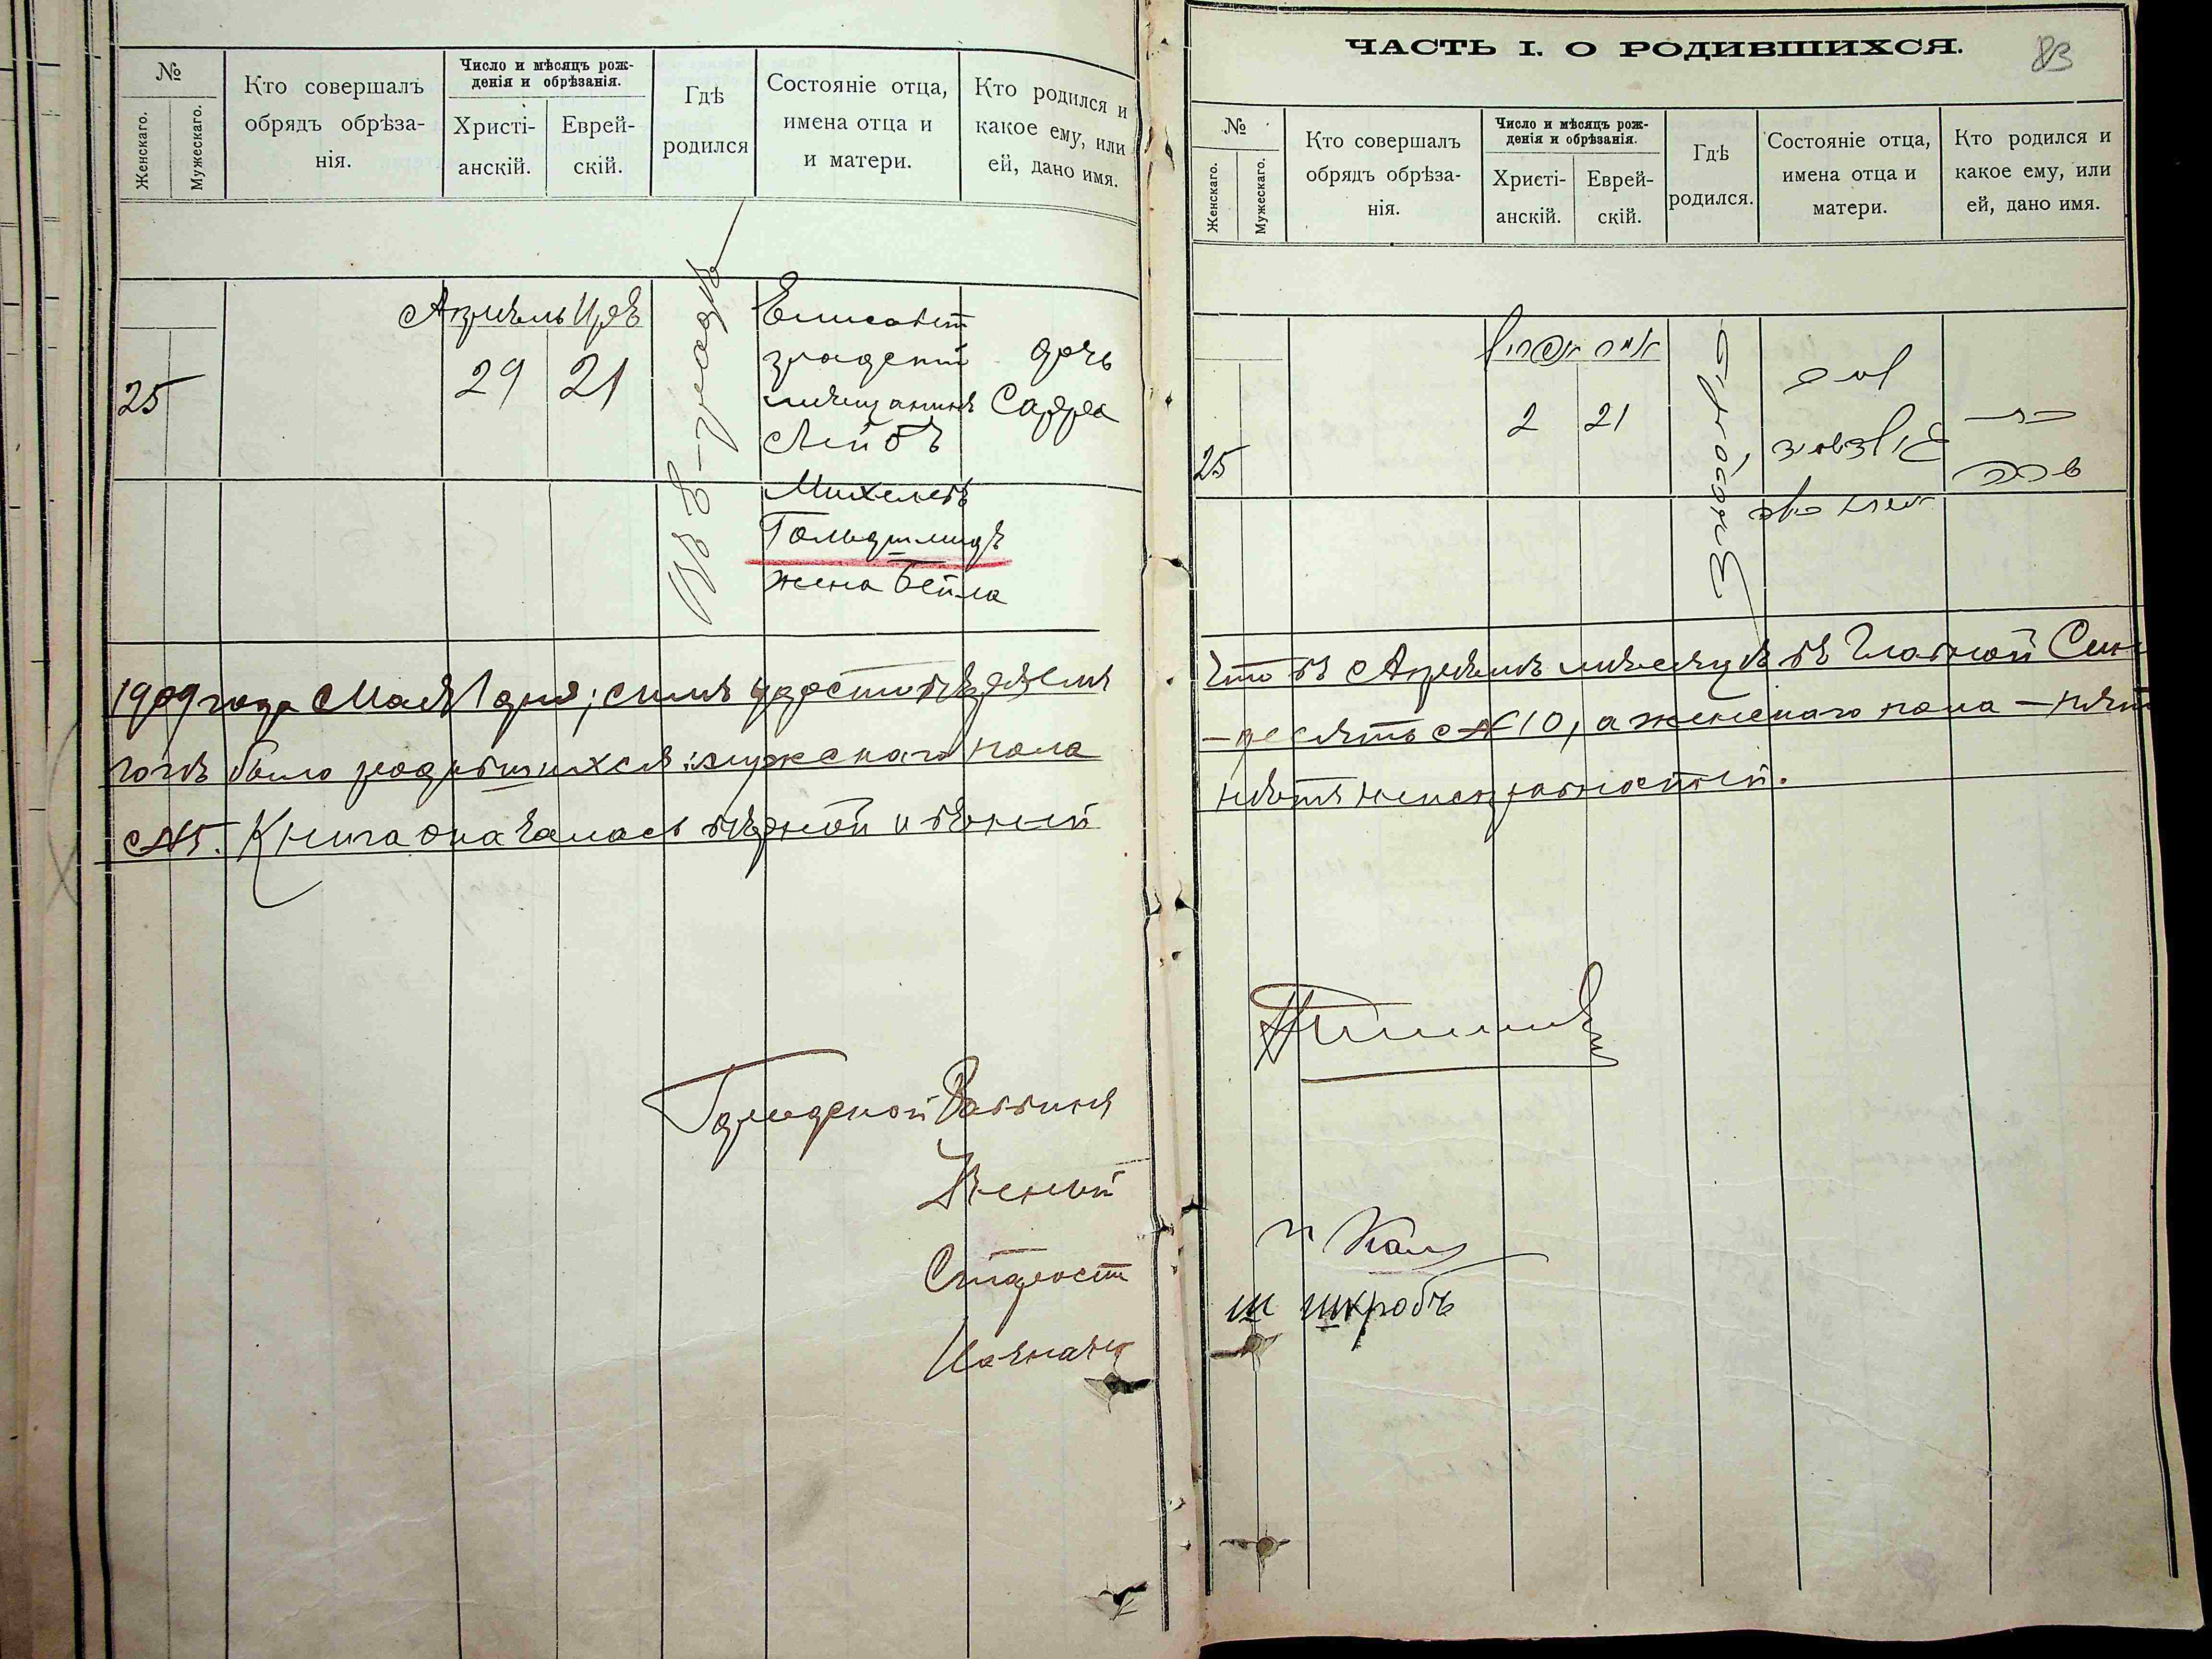 №
Женскаго.
Мужескаго.
Кто совершалъ
обрядъ обрѣза-
нія.
Число и мѣсяцъ рож-
денія и обрѣзанія.
Христі-
анскій.
Еврей-
скій.
Гдѣ
родился
Состояніе отца,
имена отца и
и матери.
Кто родился и
какое ему, или
ей, дано имя.
Апрѣль Иръ
25
29
21
Елисавет
градскій
мѣщанинъ
Лейбъ
Михелевъ
Гольдшмидъ
жена Бейла
дочь
Сарра
1909 года Мая 1 дня; симъ удостовѣряемъ
гогѣ было родившихся: мужскаго пола
№5. Книга оказалась вѣрной и въ ней
Городской Раввинъ
Ученый
Староста
Казначей
ЧАСТЬ I. О РОДИВШИХСЯ.
83
№
Женскаго.
Мужескаго.
Кто совершалъ
обрядъ обрѣза-
нія.
Число и мѣсяцъ рож-
денія и обрѣзанія.
Христі-
анскій.
Еврей-
скій.
Гдѣ
родился.
Состояніе отца,
имена отца и
матери.
Кто родился и
какое ему, или
ей, дано имя.
25
2
21
что въ Апрѣлѣ мѣсяцѣ въ Главной Сина
-десять №10, а женскаго пола — пять
нѣтъ неисправностей.
Ш Шкробъ